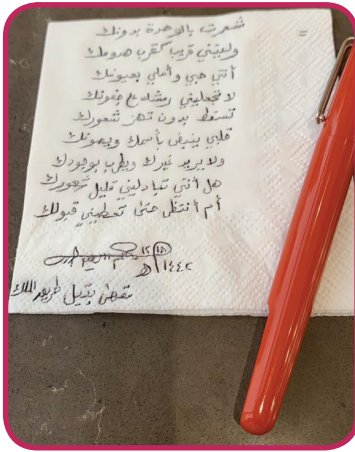 شعرت بالوحدة بدونك
وليتني قريب كقرب هدومك
أنتي حبي وأملي بعيونك
لا تجعليني رمشه ع جفونك
تسقط بدون تهز شعورك
قلبي ينبض بأسمك وبصوتك
ولا يريد غيرك ويطرب بوجودك
هل أنتي تبادليني قليل شعورك
أم أنتظر حتى تعطيني قبولك
١٤٤٢هـ
مقهى بتيل طريق الملك